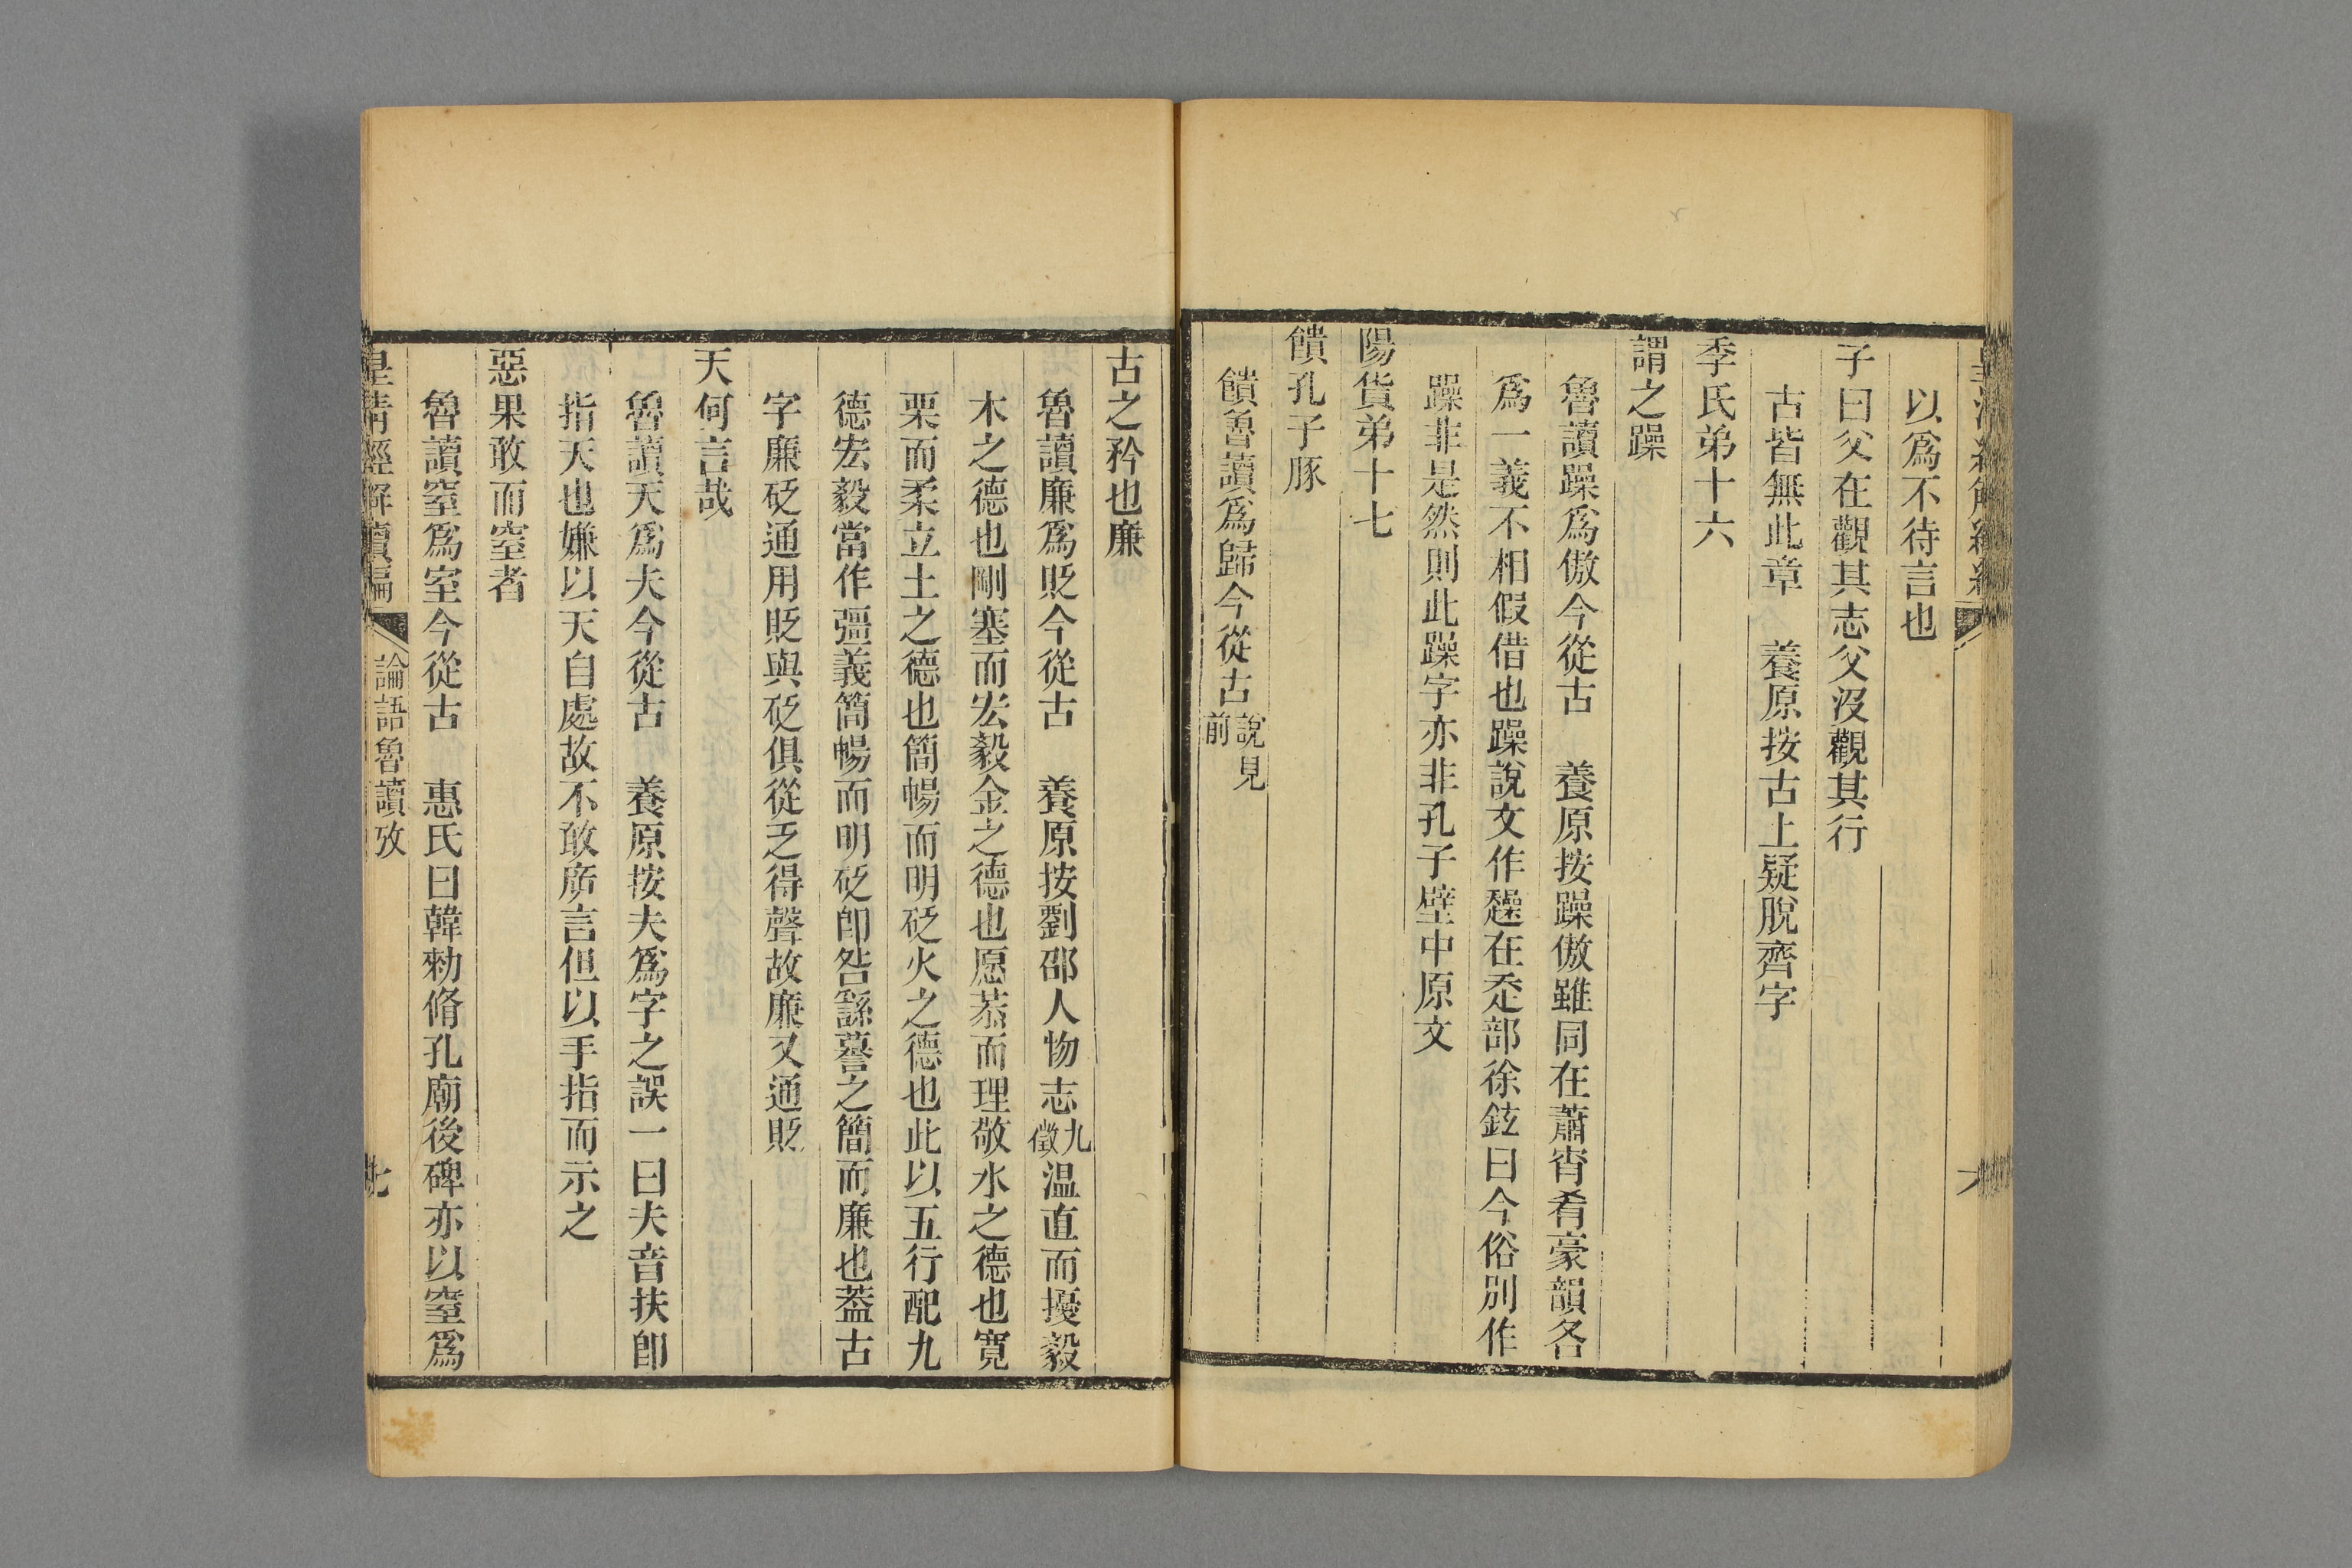 以爲不待言也
子曰父在觀其志父沒觀其行
古皆無此章　養原按古上疑脫齊字
季氏弟十六
謂之躁
魯讀躁爲傲今從古　養原按躁傲雖同在蕭宵肴豪韻各
爲一義不相假借也躁說文作趮在走部徐鉉曰今俗別作
躁非是然則此躁字亦非孔子壁中原文
陽貨弟十七
饋孔子豚
饋魯讀爲歸今從古說見前
古之矜也廉
魯讀廉爲貶今從古　養原按劉邵人物志九徵温直而擾毅
木之德也剛塞而宏毅金之德也愿恭而理敬水之德也寬
栗而柔立土之德也簡暢而明砭火之德也此以五行配九
德宏毅當作彊義簡暢而明砭卽咎繇謩之簡而廉也葢古
字廉砭通用貶與砭俱從乏得聲故廉又通貶
天何言哉
魯讀天爲夫今從古　養原按夫爲字之誤一曰夫音扶卽
指天也嫌以天自處故不敢廣言但以手指而示之
惡果敢而窒者
魯讀窒爲室今從古　惠氏曰韓勑脩孔廟後碑亦以窒爲
皇清經解續編
論語魯讀攷
七